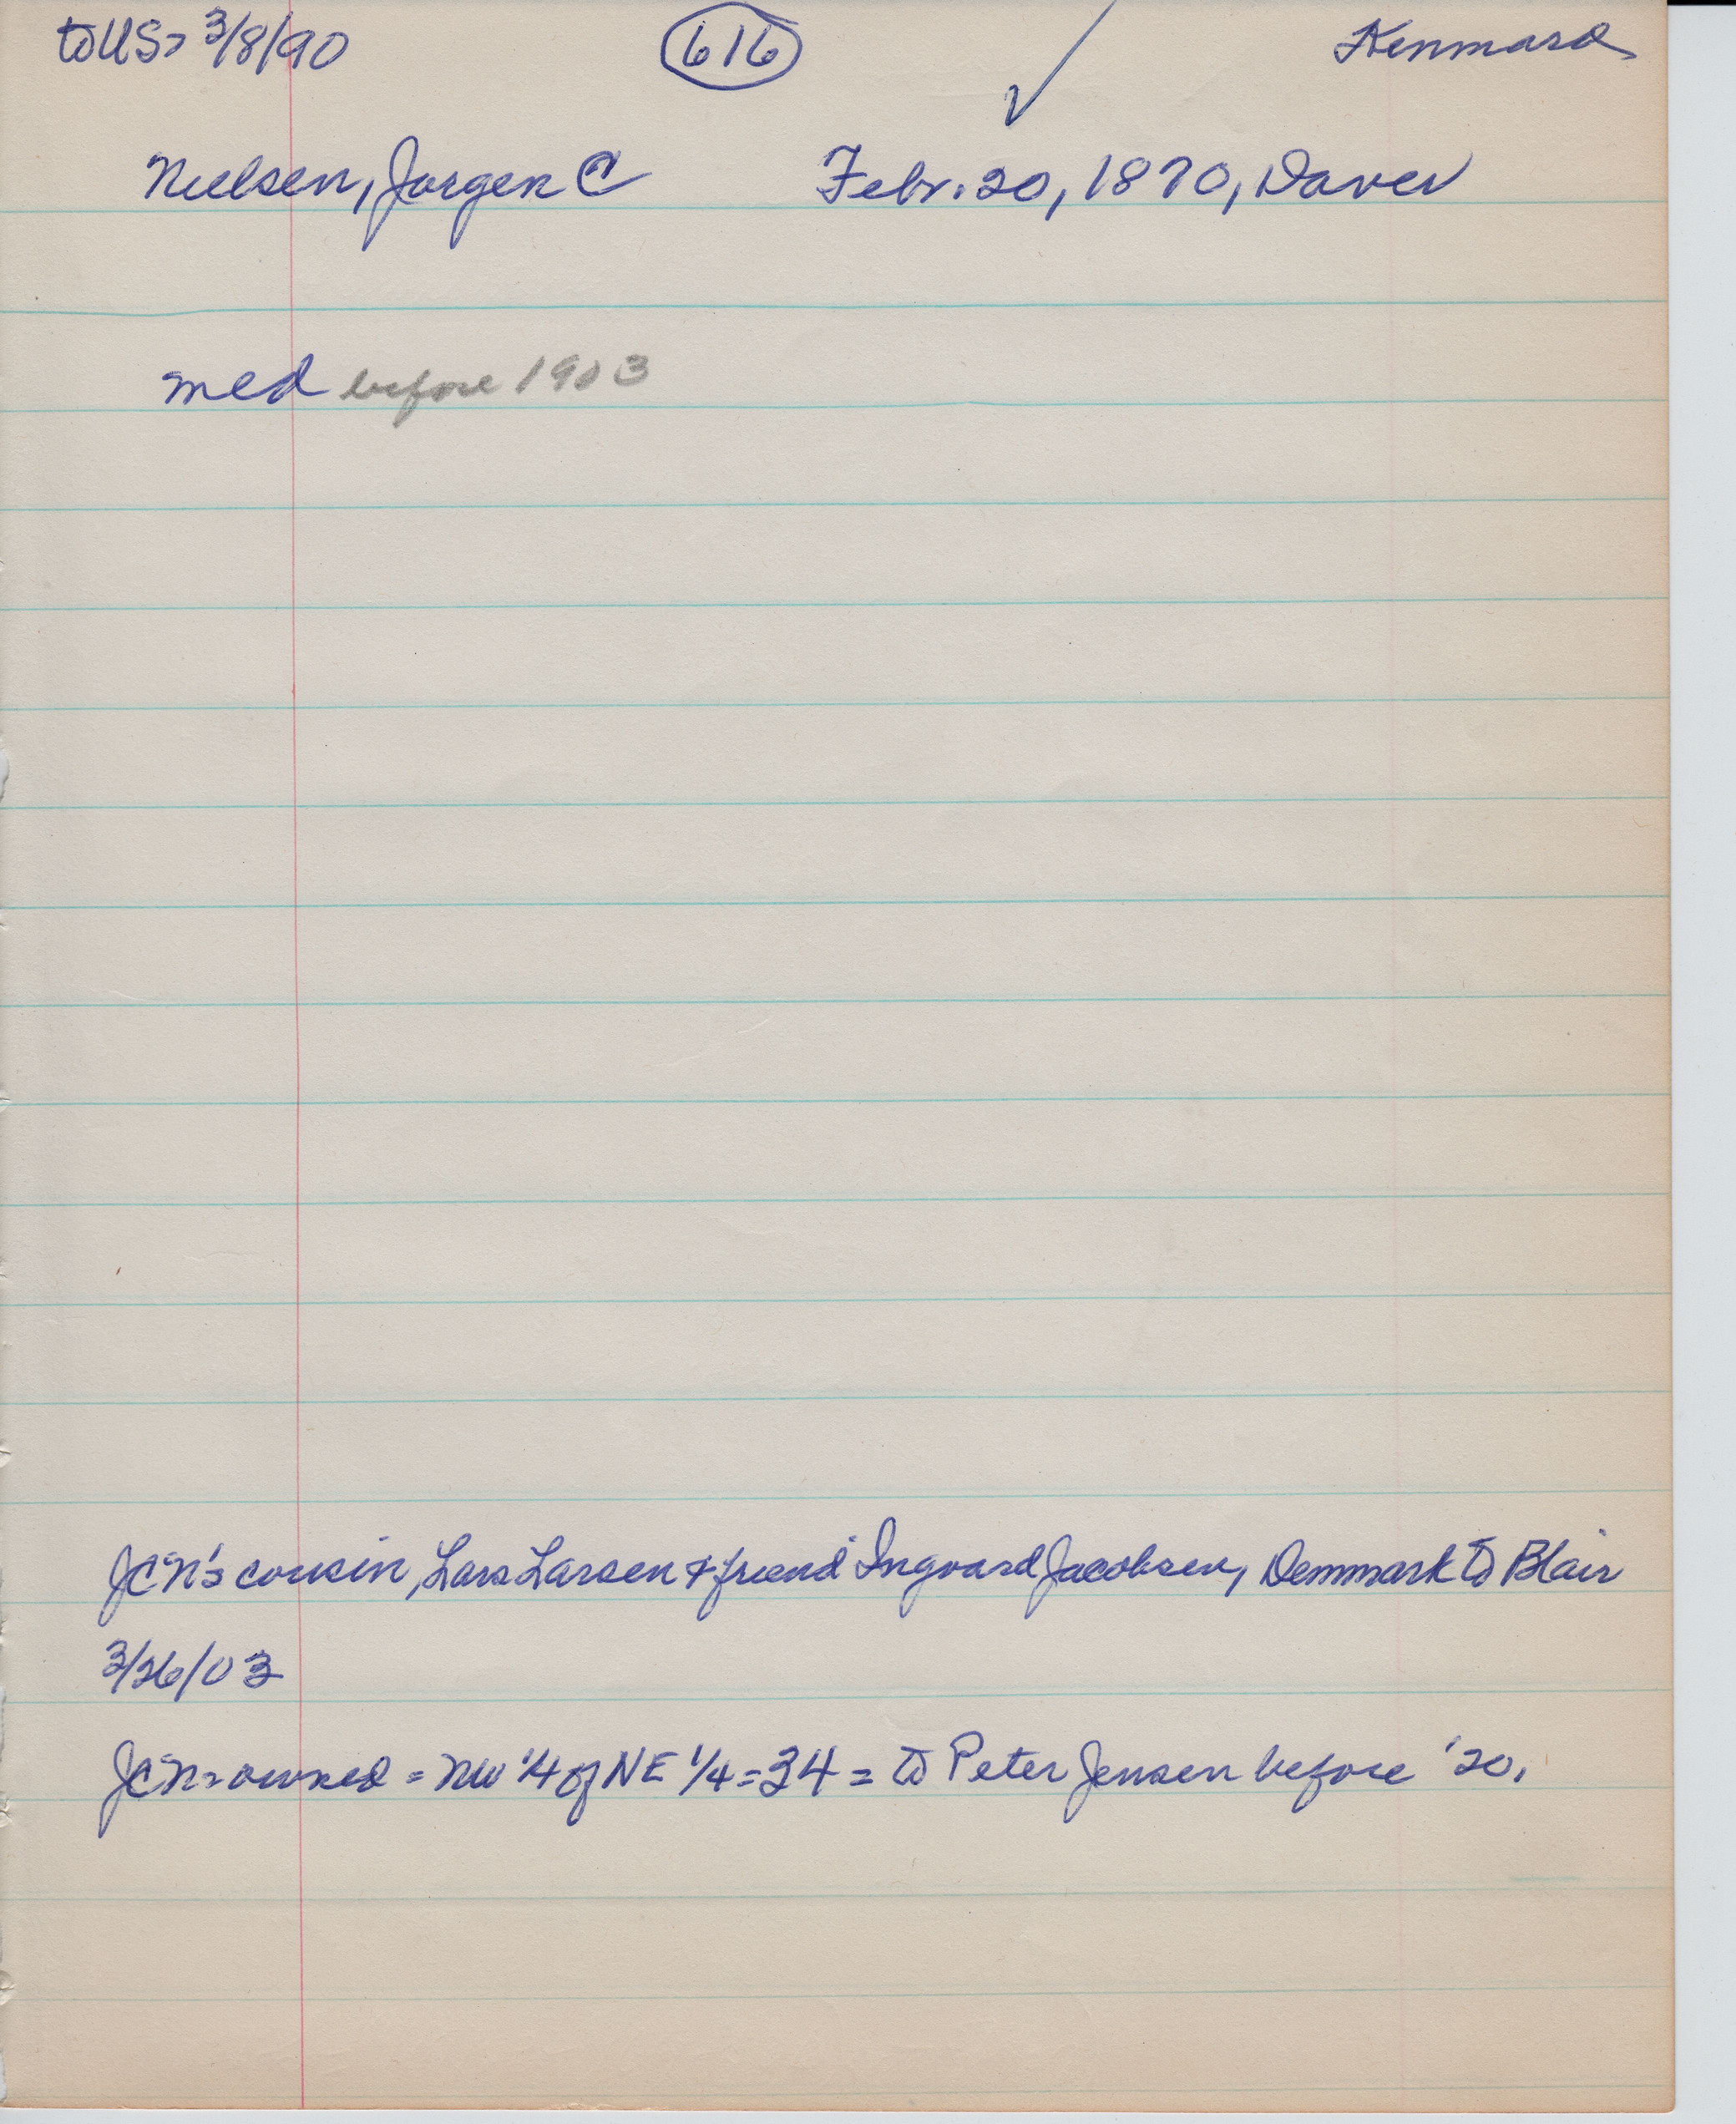 to US = 3/8/90 616 ✓ Kennard
Nielsen, Jorgen C Febr. 20, 1870,
med before 1903
JCN's cousin, Lars Larsen & friend Ingvard Jacobsen, Demmark to Blair
3/26/03
JCN = owned = NW 1/4 of NE 1/4 = 34 = to Peter Jensen before '20.